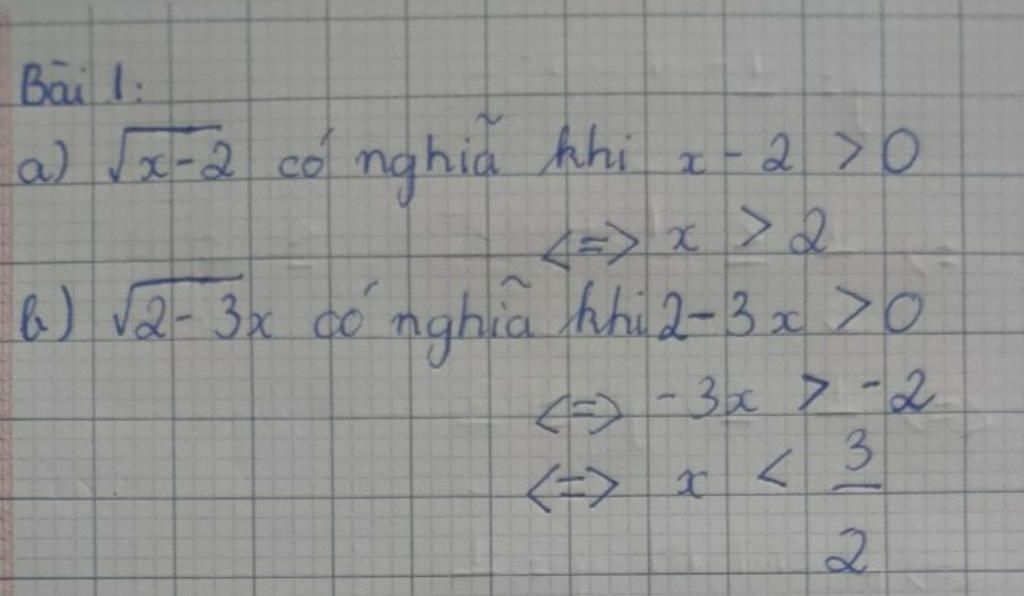 Bài 1:
a) √x-2 có nghĩã khi x - 2 > 0
<=> x > 2
b) √2-3x có nghĩã khi 2-3x > 0
<=> -3x > -2
<=> x < 3/2